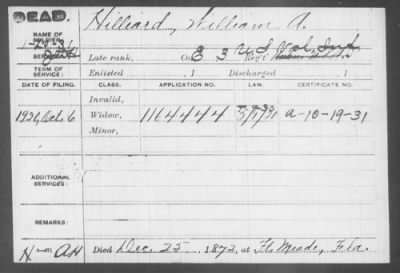 DEAD.
NAME OF SOLDIER: Hilliard, William A.
SERVICE: Late rank, Co. E 3 U S Vol Inf. Reg't
TERM OF SERVICE: Enlisted , 1 Discharged , 1
DATE OF FILING. CLASS. APPLICATION NO. LAW. CERTIFICATE NO.
Invalid,
1926, Oct. 6 Widow, 1164444 A-10-19-31
Minor,
ADDITIONAL SERVICES:
REMARKS:
Died Dec. 25, 1872, at Ft. Meade, Fla.